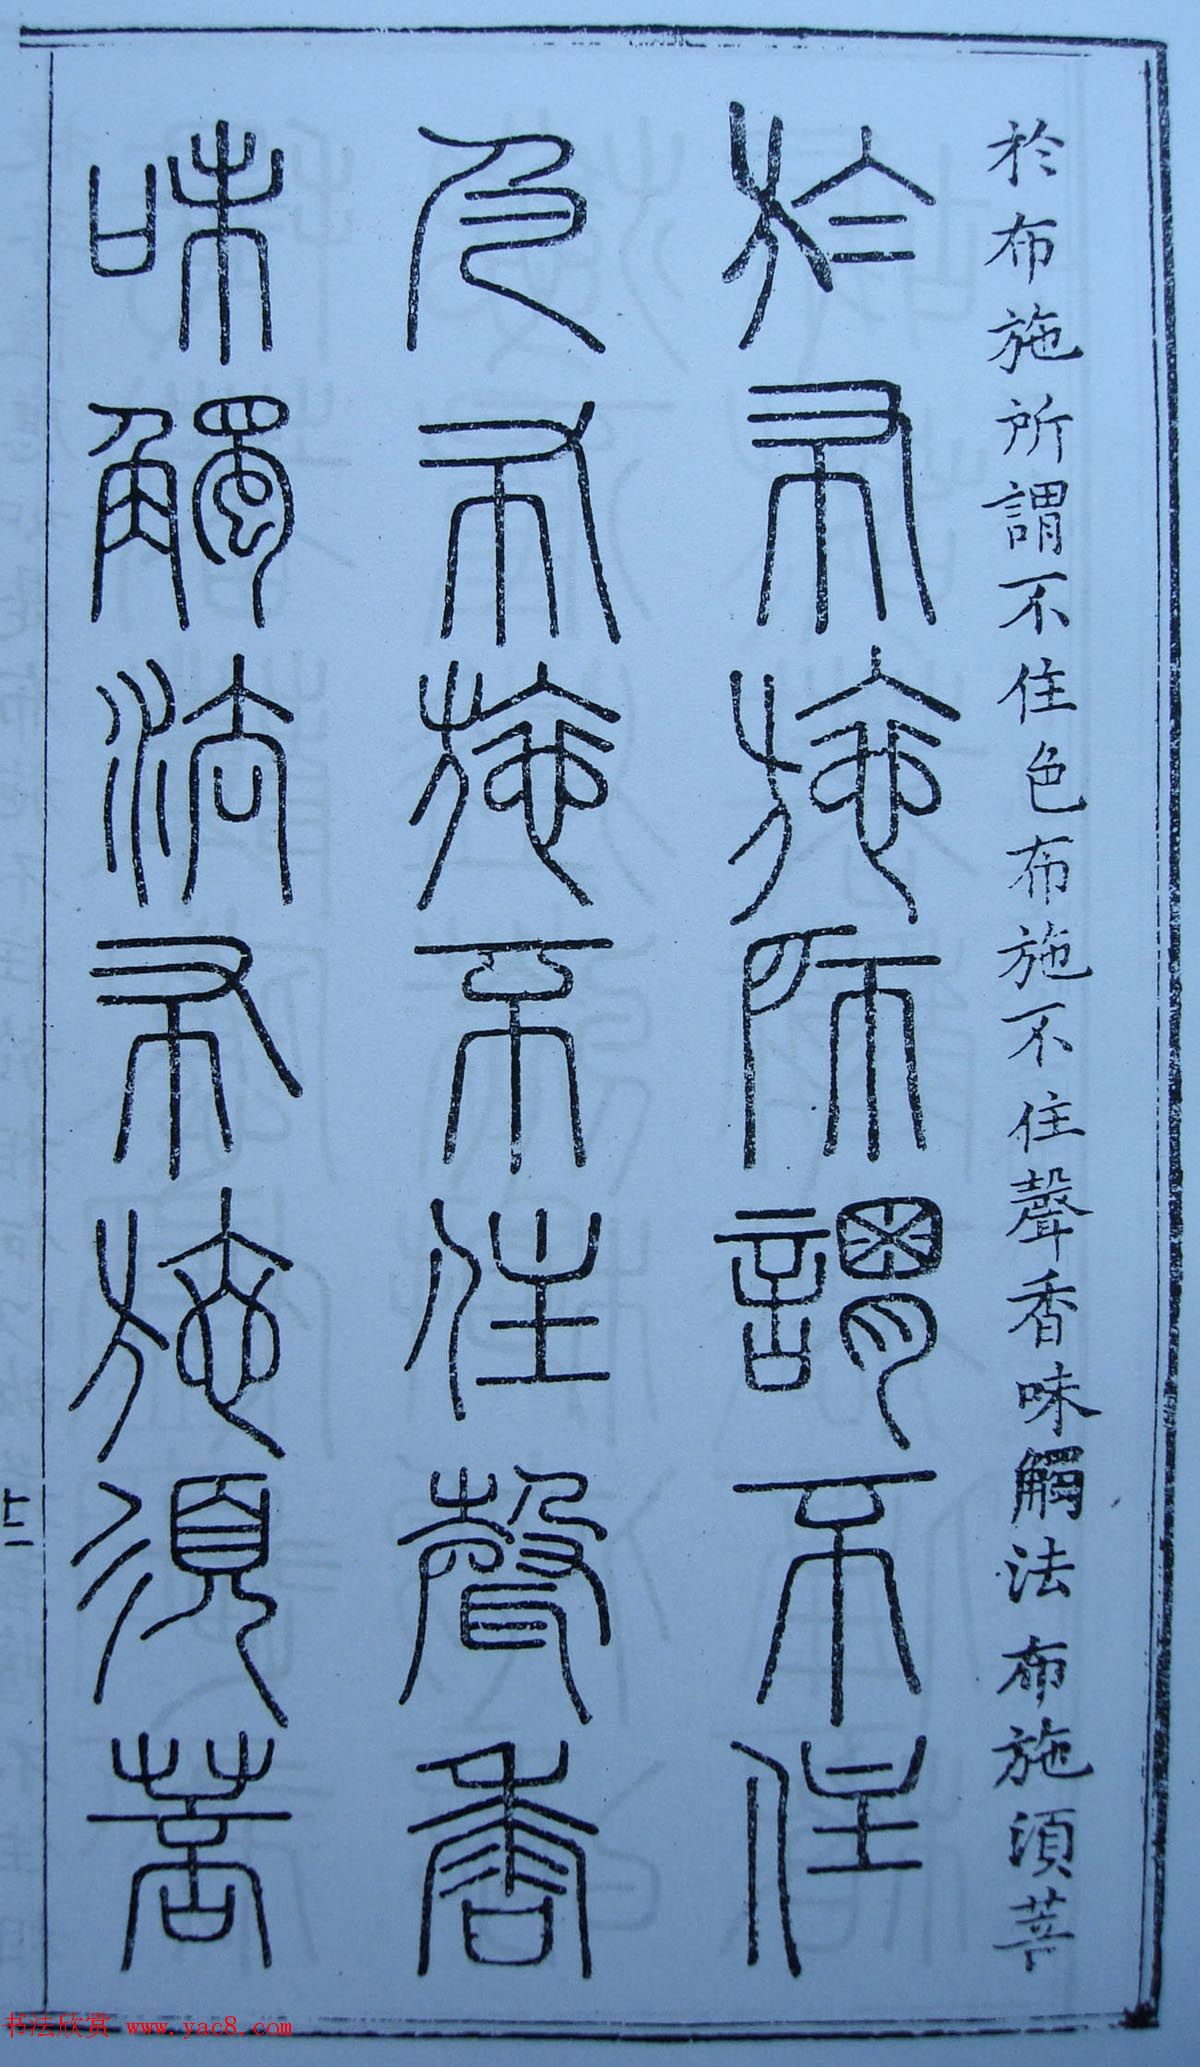 於布施所謂不住色布施不住聲香味觸法布施須菩
於布施所謂不住
色布施不住聲香
味觸法布施須菩
十二
书法欣赏 www.yac8.com